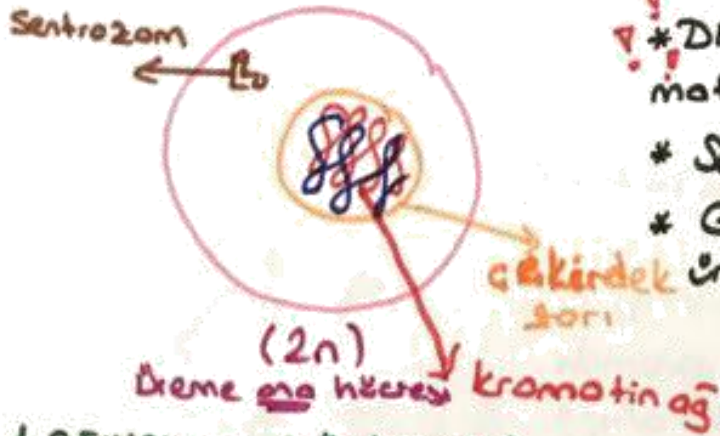 Sentrozom
* D
mat
* S
* G
ür
çekirdek
zarı
(2n)
Üreme ana hücresi
kromatin ağ